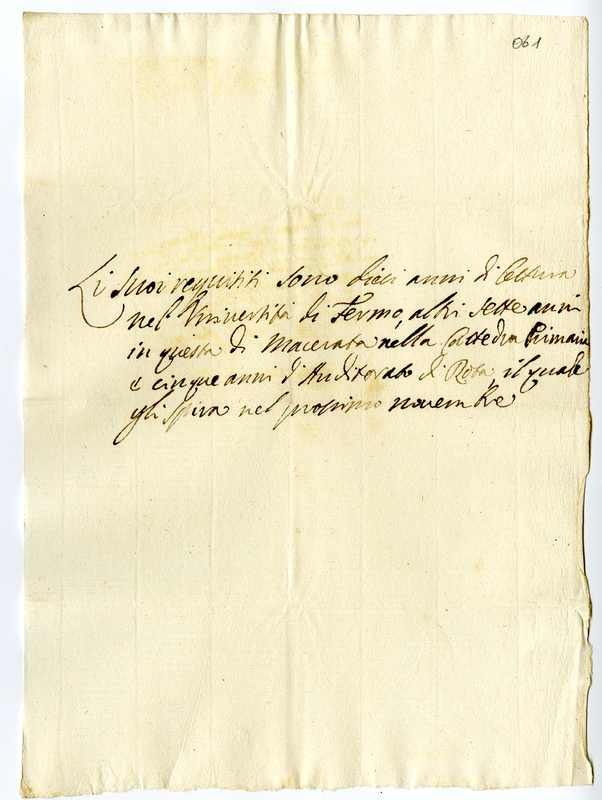 061
Li suoi requisiti sono dieci anni di lettura
nel Università di Fermo, altri sette anni
in questa di Macerata nella Cattedra Primaria
e cinque anni d'Auditorato di Rota, il quale
gli spira nel prossimo novembre